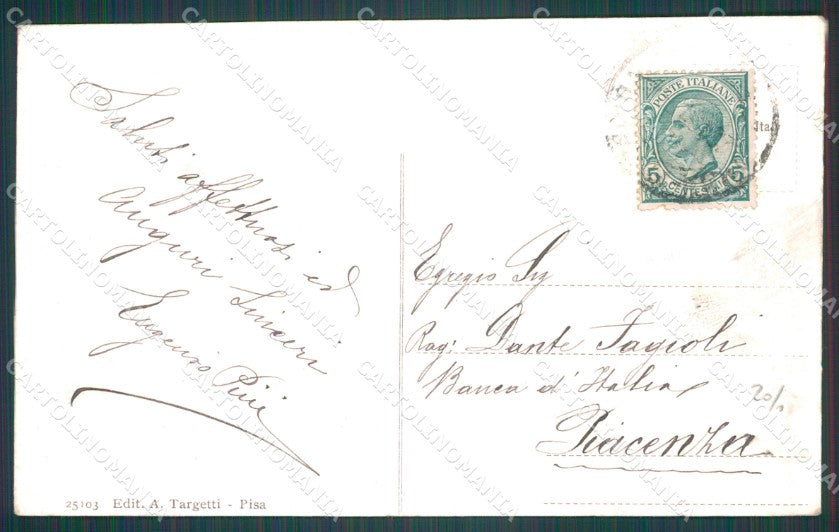 Saluti affettuosi ed
auguri sinceri
Eugenio Pini
25103 Edit. A. Targetti - Pisa
POSTE ITALIANE
5 CENTESIMI 5
Ital
Egregio Sig
Rag: Dante Fagioli
Banca d'Italia
Piacenza
20/
CARTOLINOMANIA